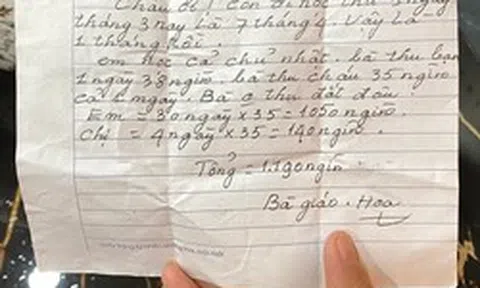 Cháu ơi! con đi học thứ 3 ngày
tháng 3 nay là 7 tháng 4. Vậy là
1 tháng rồi.
em học cả chủ nhật. bà thu bạn
1 ngày 38 ngìn. bà thu cháu 35 ngìn
cả 2 ngày. Bà o thu đắt đâu.
Em = 30 ngày x 35 = 1050 ngìn.
Chị = 4 ngày x 35 = 140 ngìn.
Tổng = 1.190 ngìn
Bà giáo. Hoa